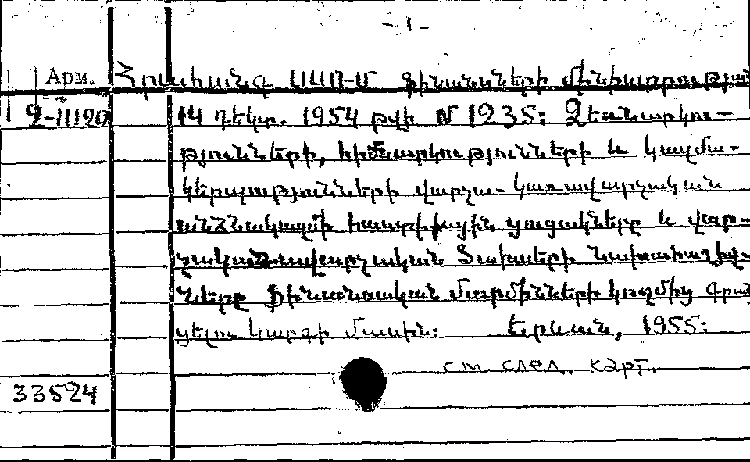 - 1 -
Арм. Հրահանգ ՍՍՌՄ ֆինանսների մինիստրության
2-11190 14 դեկտ. 1954 թվի № 1235: Ձեռնարկու-
թյունների, հիմնարկությունների և կազմա-
կերպությունների վարչա-կառավարչական
անձնակազմի հաստիքային ցուցակները և վար-
չակառավարչական ծախսերի նախահաշիվ-
ները ֆինանսական մարմինների կողմից գրան-
ցելու կարգի մասին: Երևան, 1955:
см. след. карт.
33524